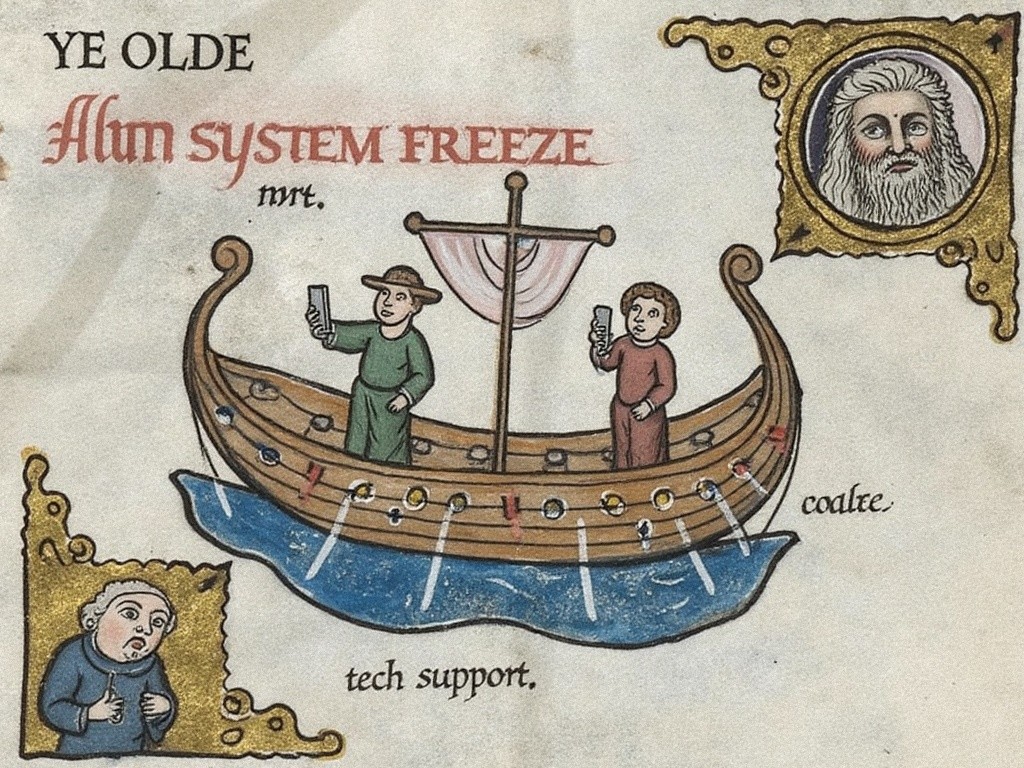 YE OLDE
SYSTEM FREEZE
mrt.
coalre.
tech support.